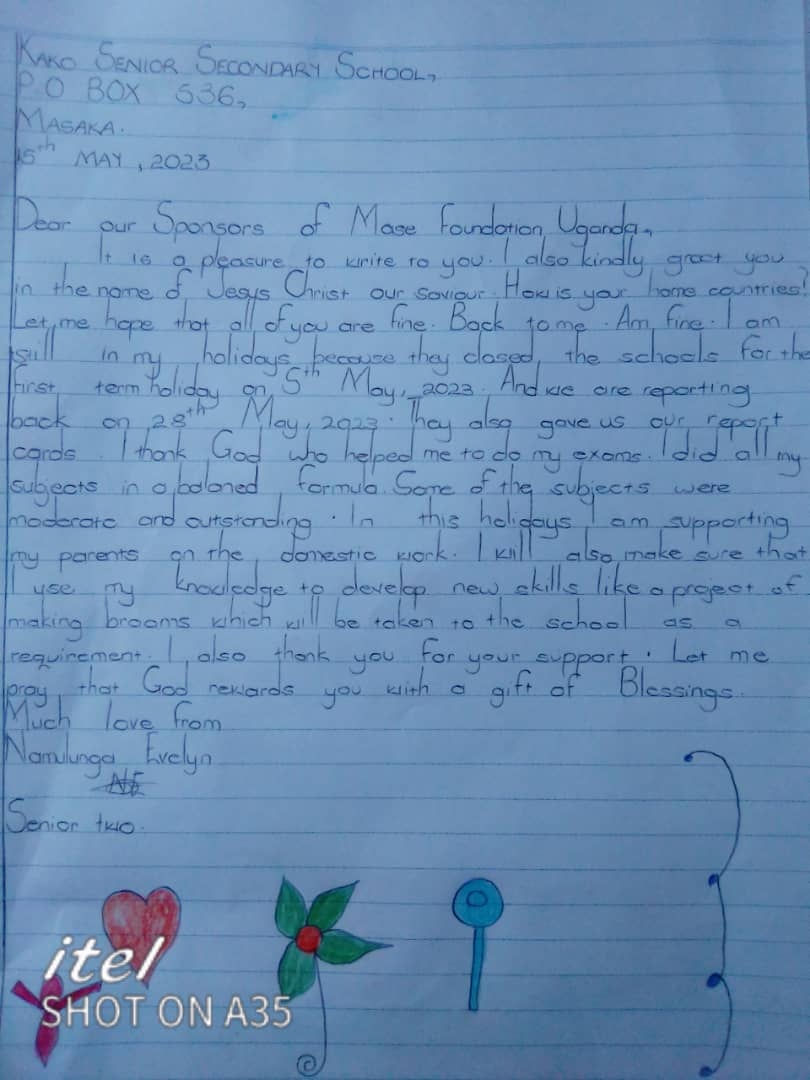 KAKO SENIOR SECONDARY SCHOOL,
P.O BOX 536,
MASAKA.
15th MAY, 2023
Dear our Sponsors of Mase Foundation Uganda,
It is a pleasure to write to you. I also kindly greet you
in the name of Jesus Christ our saviour. How is your home countries!
Let me hope that all of you are fine. Back to me. Am fine. I am
still in my holidays because they closed the schools for the
first term holiday on 5th May, 2023. And we are reporting
back on 28th May, 2023. They also gave us our report
cards. I thank God who helped me to do my exams. I did all my
subjects in a balaned formula. Some of the subjects were
moderate and outstanding. In this holidays I am supporting
my parents on the domestic work. I will also make sure that
I use my knowledge to develop new skills like a project of
making brooms which will be taken to the school as a
requirement. I also thank you for your support. Let me
pray that God rewards you with a gift of Blessings.
Much love from
Namulunga Evelyn
Senior two.
itel
SHOT ON A35